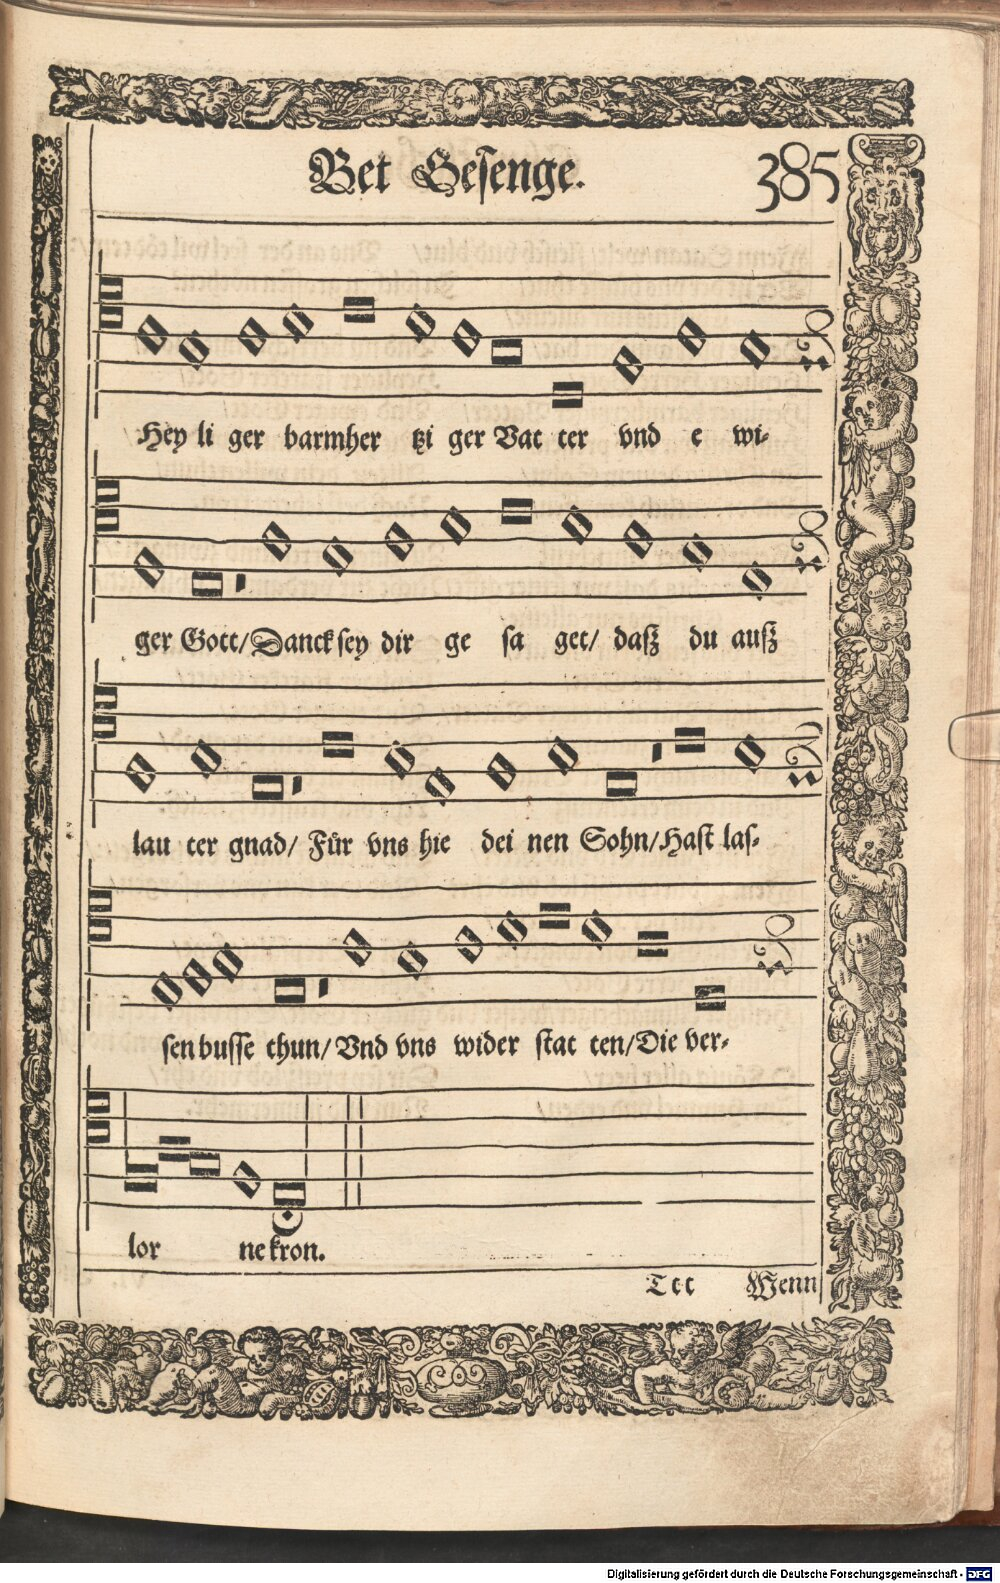 Bet Gesenge. 385
Hey li ger barmher tzi ger Vat ter vnd e wi-
ger Gott/Danck sey dir ge sa get/ dasz du ausz
lau ter gnad/ Für vns hie dei nen Sohn/Hast las-
sen busse thun/ Vnd vns wider stat ten/Die ver-
lor ne kron.
Ttt Wenn
Digitalisierung gefördert durch die Deutsche Forschungsgemeinschaft - DFG